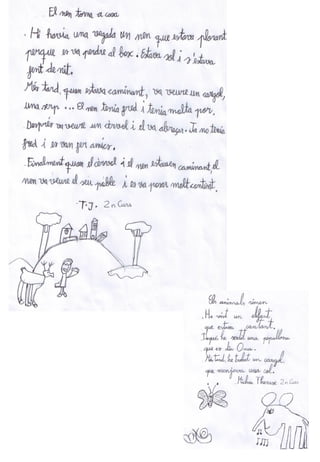 El nen torna a casa
. Hi havia una vegada un nen que estava plorant
perquè es va perdre al bosc. Estava sol i s'estava
fent de nit.
Més tard, quan estava caminant, va veure un cargol,
una serp... El nen tenia fred i tenia molta por.
Després va veure un cérvol i el va abraçar. Ja no tenia
fred i es van fer amics.
. Finalment quan el cérvol i el nen estaven caminant, el
nen va veure el seu poble i es va posar molt content.
T.J. 2n Curs
Els animals
. He vist un elefant,
que estava cantant.
una papallona
que es diu Ona.
Més tard, he trobat un cargol
que menjava una col.
2n Curs